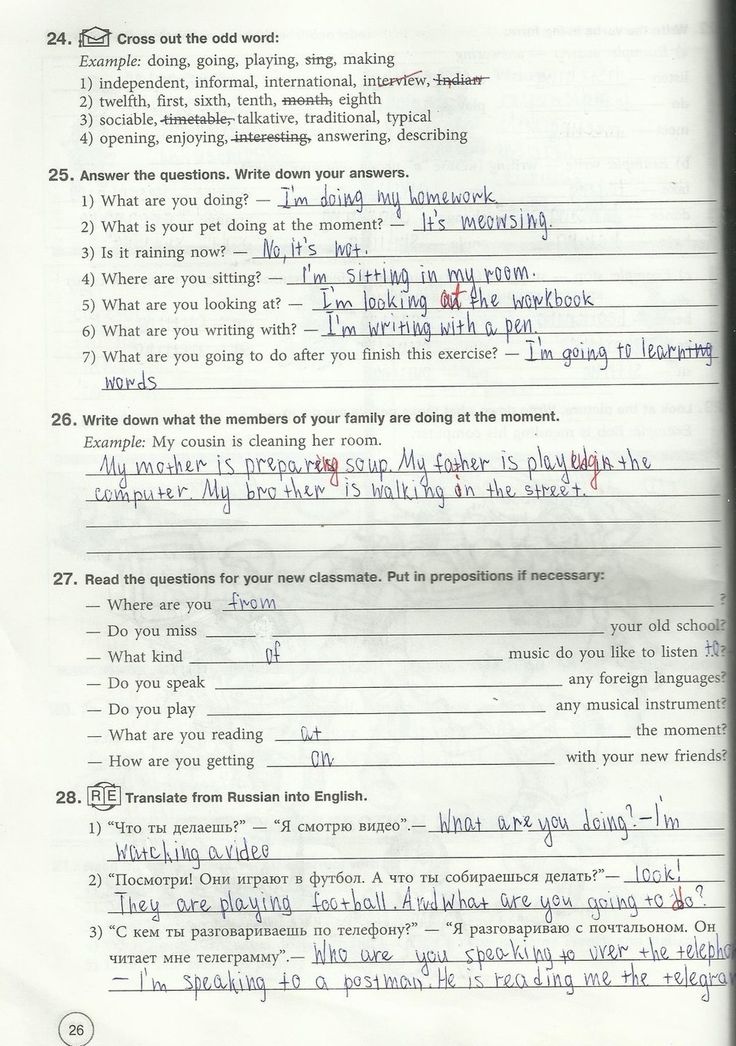 24. Cross out the odd word:
Example: doing, going, playing, sing, making
1) independent, informal, international, interview, Indian
2) twelfth, first, sixth, tenth, month, eighth
3) sociable, timetable, talkative, traditional, typical
4) opening, enjoying, interesting, answering, describing
25. Answer the questions. Write down your answers.
1) What are you doing? — I'm doing my homework.
2) What is your pet doing at the moment? — It's meowsing.
3) Is it raining now? — No, it's not.
4) Where are you sitting? — I'm sitting in my room.
5) What are you looking at? — I'm looking at the workbook
6) What are you writing with? — I'm writing with a pen.
7) What are you going to do after you finish this exercise? — I'm going to learning
words
26. Write down what the members of your family are doing at the moment.
Example: My cousin is cleaning her room.
My mother is preparing soup. My father is playing the
computer. My brother is walking in the street.
27. Read the questions for your new classmate. Put in prepositions if necessary:
— Where are you from ?
— Do you miss your old school?
— What kind of music do you like to listen to?
— Do you speak any foreign languages?
— Do you play any musical instrument?
— What are you reading at the moment?
— How are you getting on with your new friends?
28. RE Translate from Russian into English.
1) “Что ты делаешь?” — “Я смотрю видео”.— What are you doing? – I'm
watching a video
2) “Посмотри! Они играют в футбол. А что ты собираешься делать?”— look!
They are playing football. And what are you going to do?
3) “С кем ты разговариваешь по телефону?” — “Я разговариваю с почтальоном. Он
читает мне телеграмму”.— Who are you speaking to over the telepho
– I'm speaking to a postman. He is reading me the telegram
26